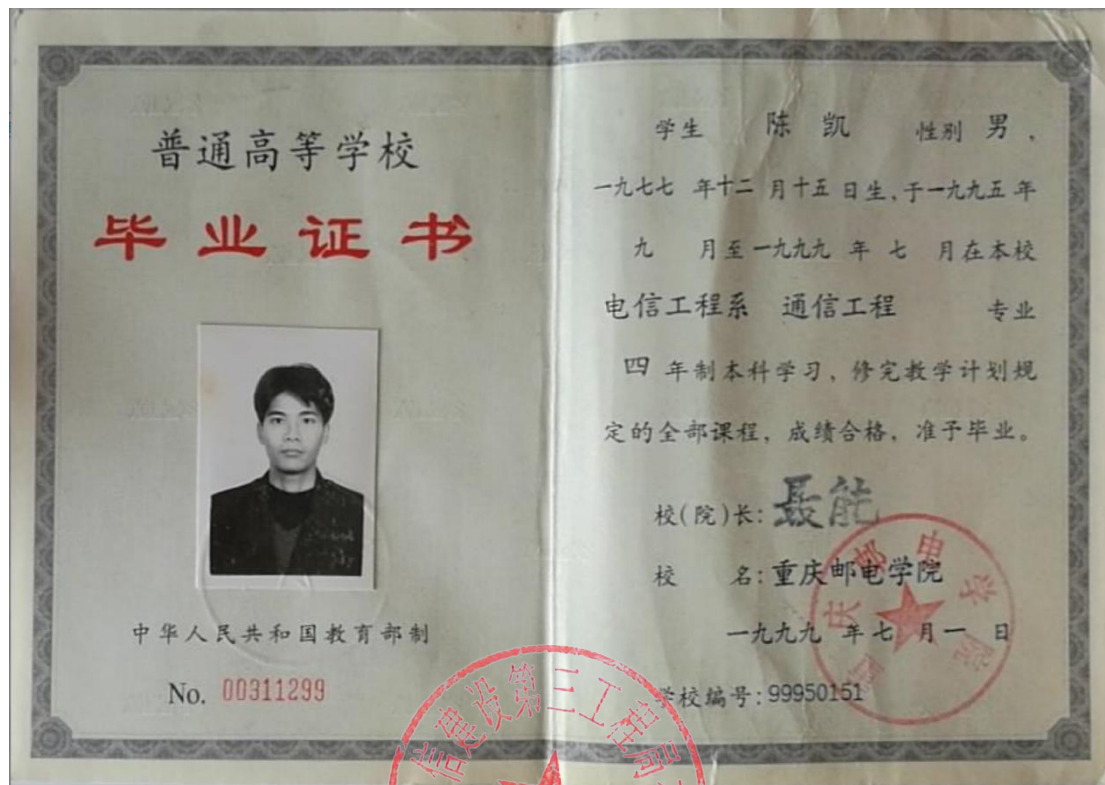 普通高等学校
毕业证书
中华人民共和国教育部制
No. 00311299
学生 陈凯 性别 男，
一九七七 年十二 月十五 日生，于一九九五年
九 月至一九九九 年 七 月在本校
电信工程系 通信工程 专业
四 年制本科学习，修完教学计划规
定的全部课程，成绩合格，准予毕业。
校(院)长: 聂能
校 名: 重庆邮电学院
一九九九 年七 月一 日
学校编号: 99950151
重庆邮电学院
信建设第三工程局